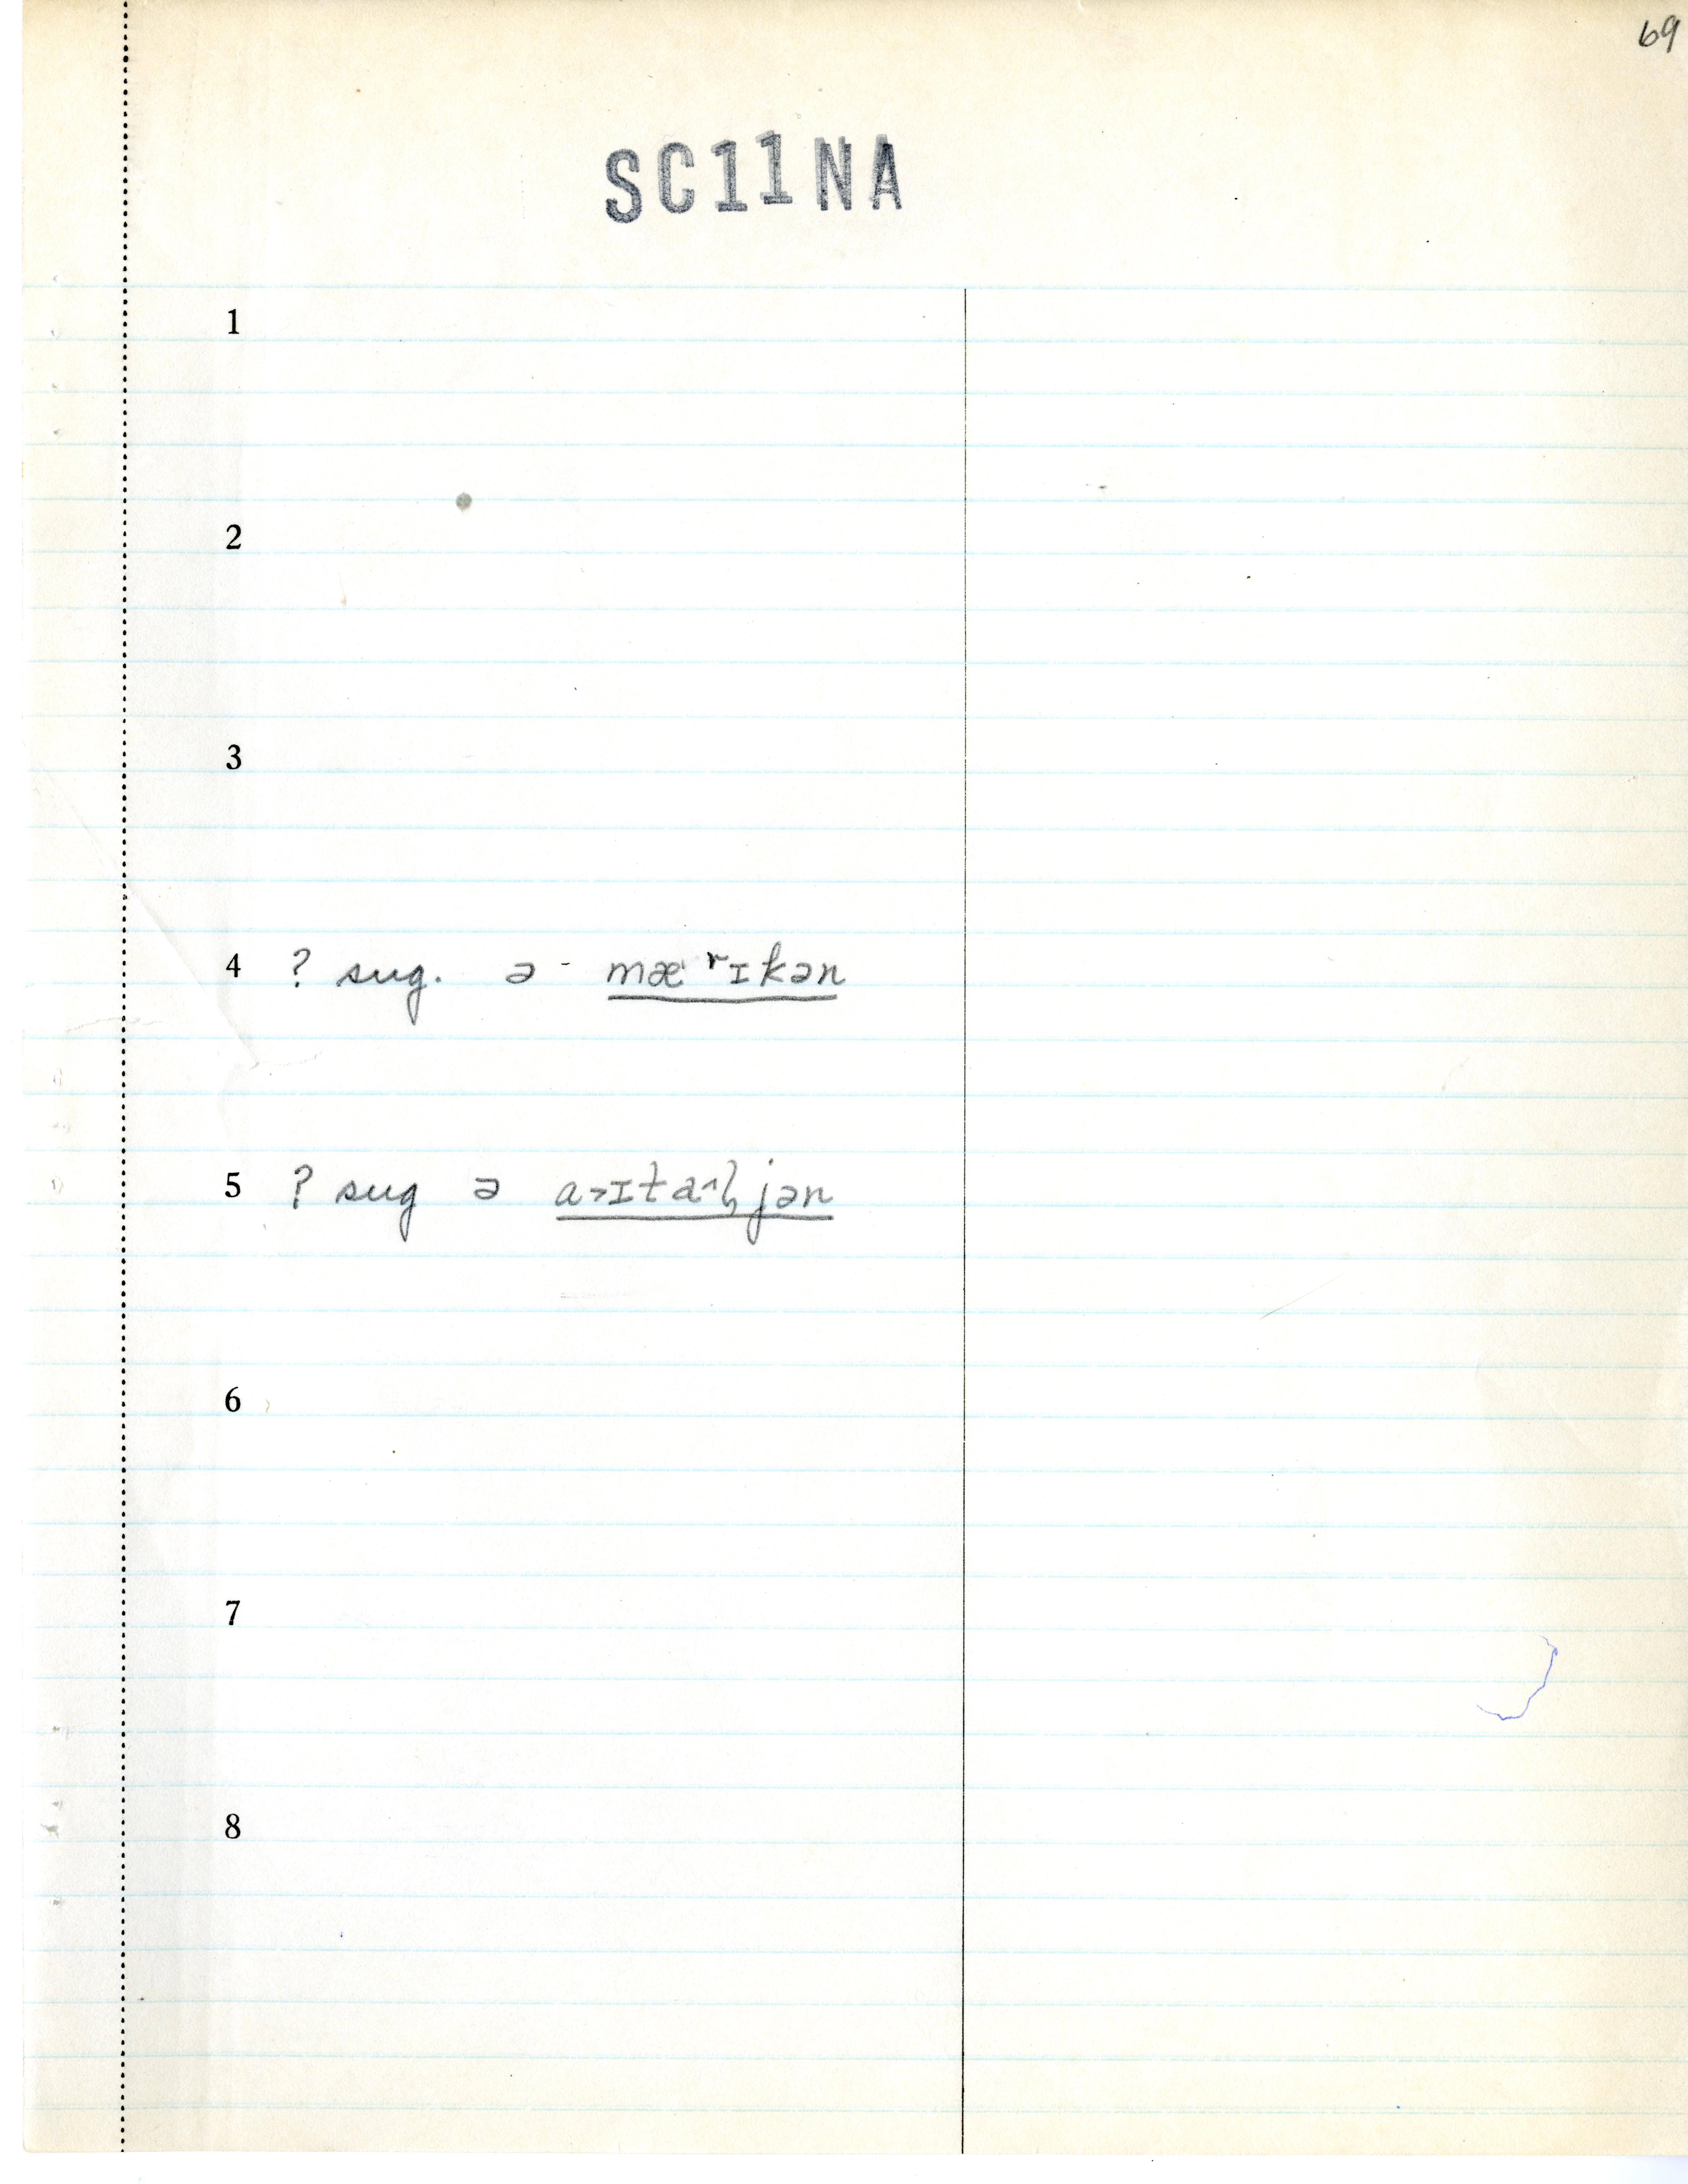 69
SC11NA
1
2
3
4 ? sug. ə - mæ rɪkən
5 ? sug ə
6
7
8